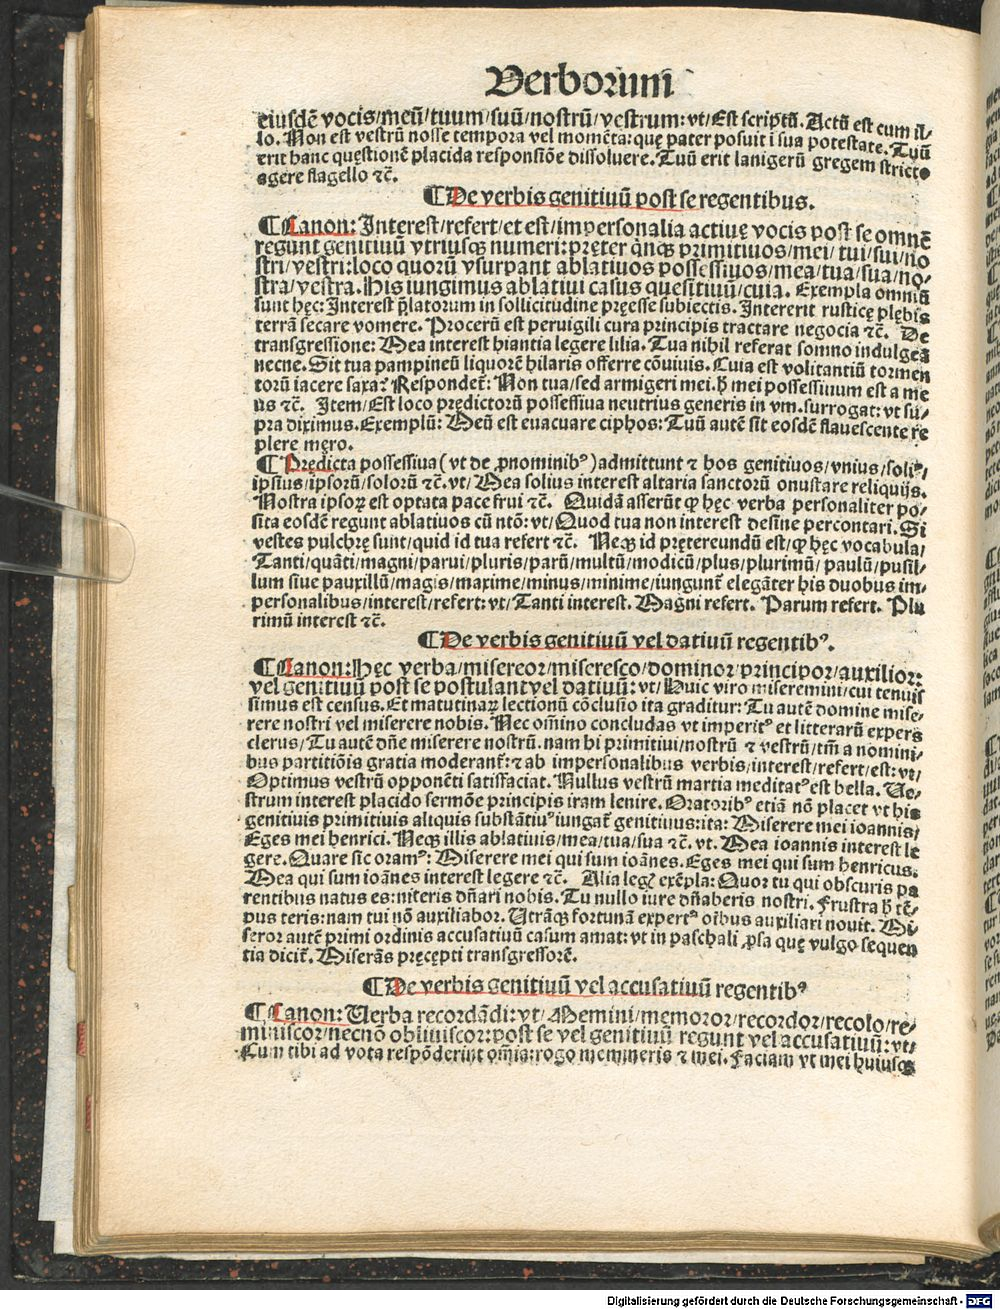 Verborum
eiusdē vocis/meū/tuum/suū/nostrū/vestrum: vt/Est scriptū. Actū est cum il-
lo. Non est vestrū nosse tempora vel momēta: quę pater posuit i sua potestate. Tuū
erit hanc quęstionē placida responsiōe dissoluere. Tuū erit lanigerū gregem stricto
agere flagello ⁊c̄.
¶ De verbis genitiuū post se regentibus.
¶ Canon: Interest/refert/et est/impersonalia actiuę vocis post se omnē
regunt genitiuū vtriusqꝫ numeri: pręter q̇nqꝫ primitiuos/mei/tui/sui/no
stri/vestri: loco quorū vsurpant ablatiuos possessiuos/mea/tua/sua/no-
stra/vestra. His iungimus ablatiui casus quesitiuū/cuia. Exempla omniū
sunt hęc: Interest p̄latorum in sollicitudine pręesse subiectis. Intererit rusticę plębis
terrā secare vomere. Procerū est peruigili cura principis tractare negocia ⁊c̄. De
transgressione: Mea interest hiantia legere lilia. Tua nihil referat somno indulgeā
necne. Sit tua pampineū liquorē hilaris offerre cōuiuis. Cuia est volitantiū tormen
torū iacere saxa? Respondet̄: Non tua/sed armigeri mei. h̄ mei possessiuum est a me
us ⁊c̄. Item/Est loco prędictorū possessiua neutrius generis in vm. surrogat: vt su-
pra diximus. Exemplū: Meū est euacuare ciphos: Tuū autē sit eosdē flauescente re
plere męro.
¶ Prędicta possessiua (vt de ꝓnominibꝰ) admittunt ⁊ hos genitiuos/vnius/soliꝰ/
ipsius/ipsorū/solorū ⁊c̄. vt/Mea solius interest altaria sanctorū onustare reliquijs.
Nostra ipsoꝝ est optata pace frui ⁊c̄. Quidā asserūt ꝙ hęc verba personaliter po-
sita eosdē regunt ablatiuos cū ntō: vt/Quod tua non interest desine percontari. Si
vestes pulchrę sunt/quid id tua refert ⁊c̄. Neqꝫ id prętereundū est/ꝙ hęc vocabula/
Tanti/quāti/magni/parui/pluris/parū/multū/modicū/plus/plurimū/paulū/pusil-
lum siue pauxillū/magis/maxime/minus/minime/iungunt̄ elegāter his duobus im-
personalibus/interest/refert: vt/Tanti interest. Magni refert. Parum refert. Plu
rimū interest ⁊c̄.
¶ De verbis genitiuū vel datiuū regentibꝰ.
¶ Canon: Hęc verba/misereor/miseresco/dominor/principor/auxilior:
vel genitiuū post se postulant vel datiuū: vt/Huic viro miseremini/cui tenuis
simus est census. Et matutinaꝝ lectionū cōclusio ita graditur: Tu autē domine mise-
rere nostri vel miserere nobis. Nec om̄ino concludas vt imperitꝰ et litterarū expers
clerus/Tu autē dn̄e miserere nostrū. nam hi primitiui/nostrū ⁊ vestrū/tm̄ a nomini-
bus partitiōis gratia moderant̄: ⁊ ab impersonalibus verbis/interest/refert/est: vt/
Optimus vestrū opponēti satisfaciat. Nullus vestrū martia meditatꝰ est bella. Ve-
strum interest placido sermōe principis iram lenire. Oratoribꝰ etiā nō placet vt his
genitiuis primitiuis aliquis substātiuꝰ iungat̄ genitiuus: ita: Miserere mei ioannis/
Eges mei henrici. Neqꝫ illis ablatiuis/mea/tua/sua ⁊c̄. vt. Mea ioannis interest le
gere. Quare sic oramꝰ: Miserere mei qui sum ioānes. Eges mei qui sum henricus.
Mea qui sum ioānes interest legere ⁊c̄. Alia legꝭ exēpla: Quoꝝ tu qui obscuris pa
rentibus natus es: niteris dn̄ari nobis. Tu nullo iure dn̄aberis nostri. Frustra h̄ tē-
pus teris: nam tui nō auxiliabor. Utrāqꝫ fortunā expertꝰ oībus auxiliari nouit. Mi-
seror autē primi ordinis accusatiuū casum amat: vt in paschali ꝓsa quę vulgo sequen
tia dicit̄. Miserās pręcępti transgressorē.
¶ De verbis genitiuū vel accusatiuū regentibꝰ
¶ Canon: Verba recordādi: vt/Memini/memoror/recordor/recolo/re-
miniscor/necnō obliuiscor: post se vel genitiuū regunt vel accusatiuū: vt/
Cum tibi ad vota respōderint om̄ia: rogo memineris ⁊ mei. Faciam vt mei huiusqꝫ
Digitalisierung gefördert durch die Deutsche Forschungsgemeinschaft - DFG